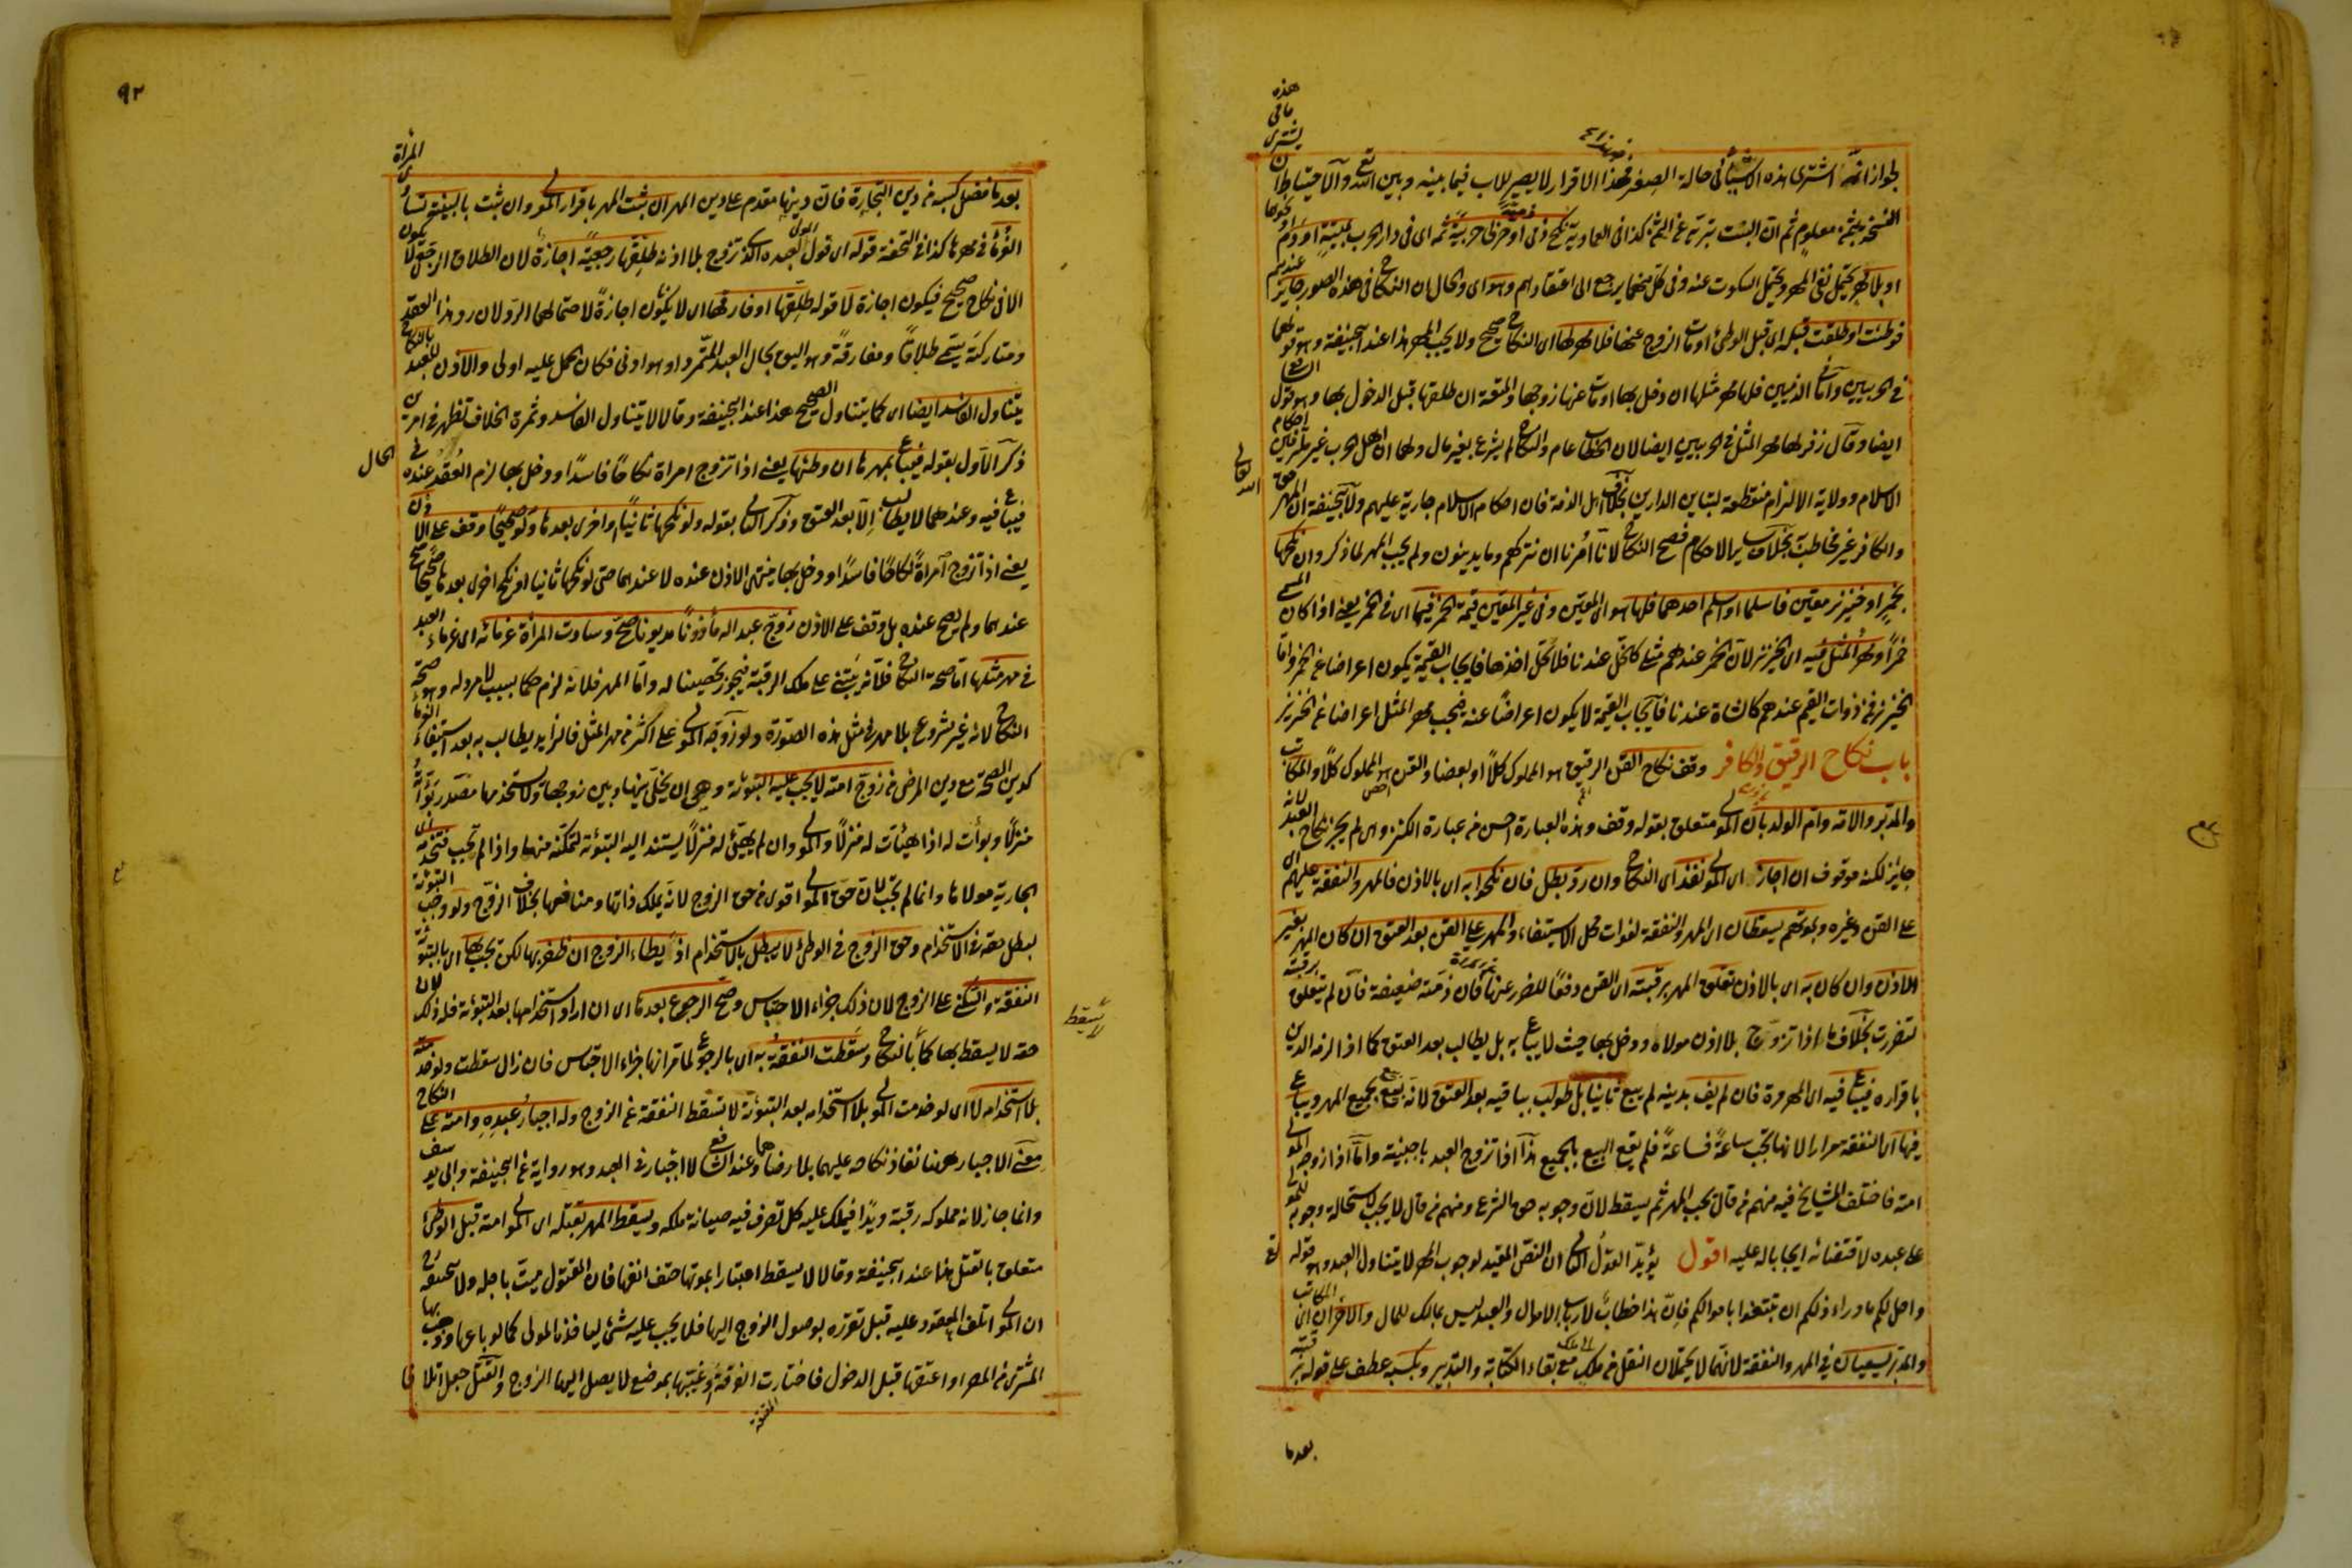 لجواز انه اشترى هذه الاشياء في حالة الصغر فهذا الاقرار لا يصير للاب فيما بينه وبين الله تع والاحتياط ان يشترى ما في هذه
النسخة بثمن معلوم ثم ان البنت تبريه عن الثمن كذا في العمادية نكح ذمى ذمية او حربى حربية ثمه اى في دار الحرب بميتة او دم او نحوها
او بلا مهر يحتمل نفى المهر ويحتمل السكوت عنه وفى كل منهما يرجع الى اعتقادهم وهو اى والحال ان النكاح في هذه الصور جايز عندهم
فوطئت او طلقت قبله اى قبل الوطئ او مات الزوج عنها فلا مهر لها اى النكاح صحيح ولا يجب المهر هذا عند ابيحنيفة وهو قولهما
في الحربيين واما في الذميين فلها مهر مثلها ان دخل بها او مات عنها زوجها والمتعة ان طلقها قبل الدخول بها وهو قول الشافعى
ايضا وقال زفر لها مهر المثل في الحربيين ايضا لان الخطاب عام والنكاح لم يشرع بغير مال ولهما ان اهل الحرب غير ملتزمين احكام
الاسلام وولاية الالزام منقطعة لتباين الدارين بخلاف اهل الذمة فان احكام الاسلام جارية عليهم ولابيحنيفة ان المهر حق الله تعالى
والكافر غير مخاطب به بخلاف ساير الاحكام فصح النكاح لانا امرنا ان نتركهم وما يدينون ولم يجب المهر لما ذكر وان نكحها
بخمر او خنزير معين فاسلما او اسلم احدهما فلها هو اى المعين وفى غير المعين قيمة الخمر فيها اى في الخمر يعنى اذا كان المسمى
خمرا ومهر المثل فيه اى الخنزير لان الخمر عندهم مثلى كالخل عندنا فلا تحل اخذها فايجاب القيمة يكون اعراضا عن الخمر واما
الخنزير فمن ذوات القيم عندهم كالشاة عندنا فايجاب القيمة لا يكون اعراضا عنه فيجب مهر المثل اعراضا عن الخنزير
باب نكاح الرقيق والكافر وقف نكاح القن الرقيق هو المملوك كلا او بعضا والقن هو المملوك كلا والمكاتب
والمدبر والامة وام الولد باذن المولى متعلق بقوله وقف وهذه العبارة احسن من عبارة الكنز وهى لم يجز نكاح العبد لانه
جايز لكنه موقوف ان اجاز اى المولى نفذ اى النكاح وان رد بطل فان نكحوا به اى بالاذن فالمهر والنفقة عليهم اى
على القن وغيره وبموتهم يسقطان اى المهر والنفقة لفوات محل الاستيفاء والمهر على القن بعد العتق ان كان المهر بغير
الاذن وان كان به اى بالاذن تعلق المهر برقبته اى القن دفعا للضرر عنها فان ذمته ضعيفة فان لم يتعلق برقبته
لتضررت بخلاف ما اذا تزوج بلا اذن مولاه ودخل بها حيث لا يباع به بل يطالب بعد العتق كما اذا لزمه الدين
باقراره فيباع فيه اى المهر مرة فان لم يف بدينه لم يبع ثانيا بل طولب بباقيه بعد العتق لانه بيع بجميع المهر ويباع
فيها اى النفقة مرارا لانها تجب ساعة فساعة فلم يقع البيع بالجميع هذا اذا تزوج العبد باجنبية واما اذا زوجه المولى
امته فاختلف المشايخ فيه منهم من قال يجب المهر ثم يسقط لان وجوبه حق الشرع ومنهم من قال لا يجب لاستحالة وجوبه للمولى
على عبده لاقتضائه ايجابا له عليه اقول يؤيد القول الثانى ان النص المقيد لوجوب المهر لا يتناول العبد وهو قوله تع
واحل لكم ما وراء ذلكم ان تبتغوا باموالكم فان هذا خطاب لارباب الاموال والعبد ليس بمالك للمال والاخران اى المكاتب
والمدبر يسعيان في المهر والنفقة لانهما لا يحتملان النقل من ملك الى ملك مع بقاء الكتابة والتدبير وبكسبه عطف على قوله برقبته
بعدما
٩٢
بعدما فضل كسبه من دين التجارة فان دينها مقدم على دين المهر ان ثبت المهر باقرار المولى وان ثبت بالبينة تساوى المرأة
الغرماء في مهرها كذا في التحفة قوله اى قول المولى لعبده الذى تزوج بلا اذنه طلقها رجعية اجازة لان الطلاق الرجعى لا يكون
الا في نكاح صحيح فيكون اجازة لا قوله طلقها او فارقها اى لا يكون اجازة لاحتمالهما الرد لان رد هذا العقد
ومتاركته يسمى طلاقا ومفارقة وهو اليق بحال العبد المتمرد او هو ادنى فكان الحمل عليه اولى والاذن للعبد بالنكاح
يتناول الفاسد ايضا اى كما يتناول الصحيح هذا عند ابيحنيفة وقالا لا يتناول الفاسد وثمرة الخلاف تظهر في امرين
ذكر الاول بقوله فيباع بمهرها ان وطئها يعنى اذا تزوج امراة نكاحا فاسدا ودخل بها لزم العقد عنده في الحال
فيباع فيه وعندهما لا يطالب الا بعد العتق وذكر الثانى بقوله ولو نكحها ثانيا او اخرى بعدها ولو صحيحا وقف على الاذن
يعنى اذا تزوج امراة نكاحا فاسدا ودخل بها ينتهى الاذن عنده لا عندهما حتى لو نكحها ثانيا او نكح اخرى بعدها صحيحا صح
عندهما ولم يصح عنده بل وقف على الاذن زوج عبدا له مأذونا مديونا صح وساوت المرأة غرمائه اى غرماء العبد
في مهر مثلها اما صحة النكاح فلانه يبتنى على ملك الرقبة فيجوز تحصينا له واما المهر فلانه لزم حكما بسبب لا مرد له وهو صحة
النكاح لانه غير مشروع بلا مهر في مثل هذه الصورة ولو زوجه المولى على اكثر من مهر المثل فالزايد يطالب به بعد استيفاء الغرماء
كدين الصحة مع دين المرض من زوج امته لا يجب عليه التبوئة وهى ان يخلى بينها وبين زوجها ولا يستخدمها مصدر بوأته
منزلا وبوأت له اذا هيئات له منزلا والمولى وان لم يهيئ له منزلا يستند اليه التبوئة لتمكنه منها واذا لم تجب فتخدمه اى
الجارية مولاها وانما لم تجب لان حق المولى اقوى من حق الزوج لانه يملك ذاتها ومنافعها بخلاف الزوج ولو وجب التبوئة
لبطل حقه في الاستخدام وحق الزوج في الوطئ لا يبطل بالاستخدام اذ يطاء الزوج ان ظفر بها لكن تجب بها اى بالتبوئة
النفقة والسكنى على الزوج لان ذلك جزاء الاحتباس وصح الرجوع بعدها اى ان اراد استخدامها بعد التبوئة فله ذلك لان
حقه لا يسقط بها كما بالنكاح وسقطت النفقة به اى بالرجوع لما مر انها جزاء الاحتباس فان زال سقطت ولو خدمته
بلا استخدامه لا اى لو خدمت المولى بلا استخدامه بعد التبوئة لا تسقط النفقة عن الزوج وله اجبار عبده وامته على النكاح
معنى الاجبار هنا نفاذ نكاحه عليهما بلا رضاهما وعند الشافعى لا اجبار في العبد وهو رواية عن ابيحنيفة وابى يوسف
وانما جاز لانه مملوكه رقبة ويدا فيملك عليه كل تصرف فيه صيانة ملكه ويسقط المهر بقتله اى المولى امته قبل الوطئ
متعلق بالقتل هذا عند ابيحنيفة وقالا لا يسقط اعتبارا بموتها حتف انفها فان المقتول ميت باجله ولابيحنيفة
ان المولى اتلف المعقود عليه قبل تقرره بوصول الزوج اليها فلا يجب عليه شئ لها فذا المولى كما لو باعها وذهب بها
المشترى من المصر او اعتقها قبل الدخول فاختارت الفرقة او غيبها بموضع لا يصل اليها الزوج والقتل جعل اتلافا
لا يسقط